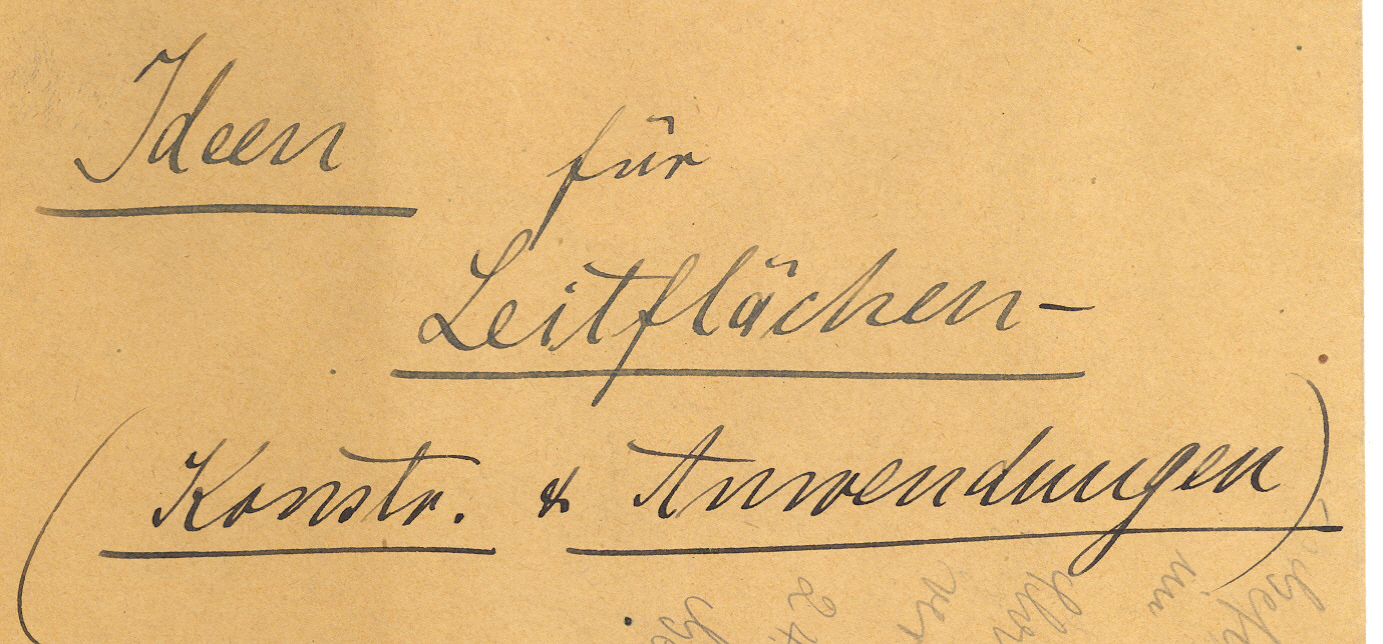 Ideen für
Leitflächen-
(Konstr. & Anwendungen)